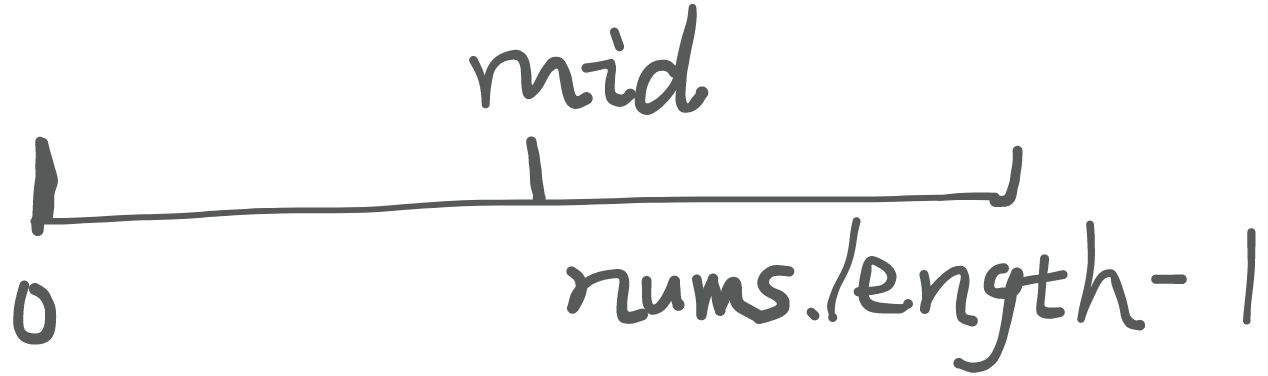 mid
0
nums.length-1